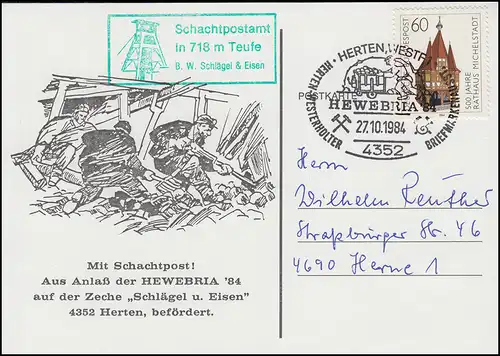 Schachtpostamt
in 718 m Teufe
B. W. Schlägel & Eisen
POSTKARTE
HERTEN, WESTF
HERTEN-WESTERHOLTER
BRIEFMARKEN
HEWEBRIA '84
27.10.1984
4352
60
500 JAHRE
RATHAUS MICHELSTADT
Herrn
Wilhelm Reuther
Straßburger Str. 46
4690 Herne 1
Mit Schachtpost!
Aus Anlaß der HEWEBRIA '84
auf der Zeche „Schlägel u. Eisen"
4352 Herten, befördert.